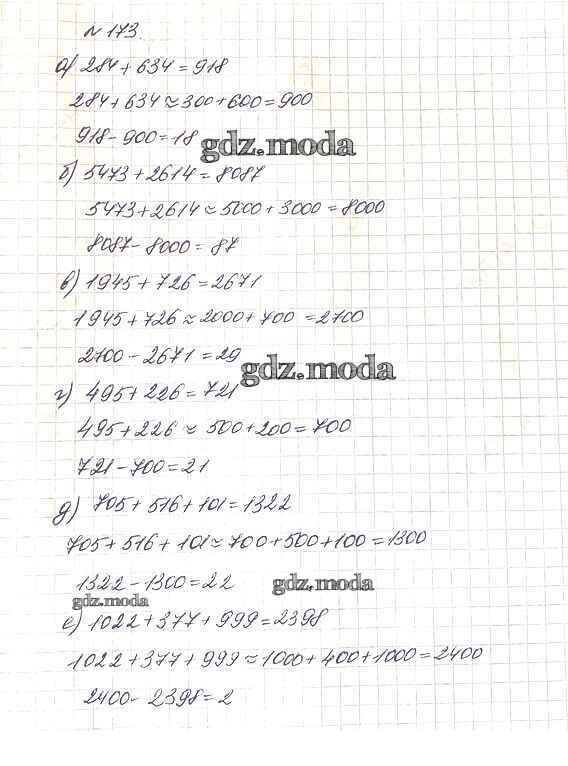 № 173.
а) 284 + 634 = 918
284 + 634 ≈ 300 + 600 = 900
918 - 900 = 18
gdz.moda
б) 5473 + 2614 = 8087
5473 + 2614 ≈ 5000 + 3000 = 8000
8087 - 8000 = 87
в) 1945 + 726 = 2671
1945 + 726 ≈ 2000 + 700 = 2700
2700 - 2671 = 29
gdz.moda
г) 495 + 226 = 721
495 + 226 ≈ 500 + 200 = 700
721 - 700 = 21
д) 705 + 516 + 101 = 1322
705 + 516 + 101 ≈ 700 + 500 + 100 = 1300
1322 - 1300 = 22
gdz.moda
gdz.moda
е) 1022 + 377 + 999 = 2398
1022 + 377 + 999 ≈ 1000 + 400 + 1000 = 2400
2400 - 2398 = 2